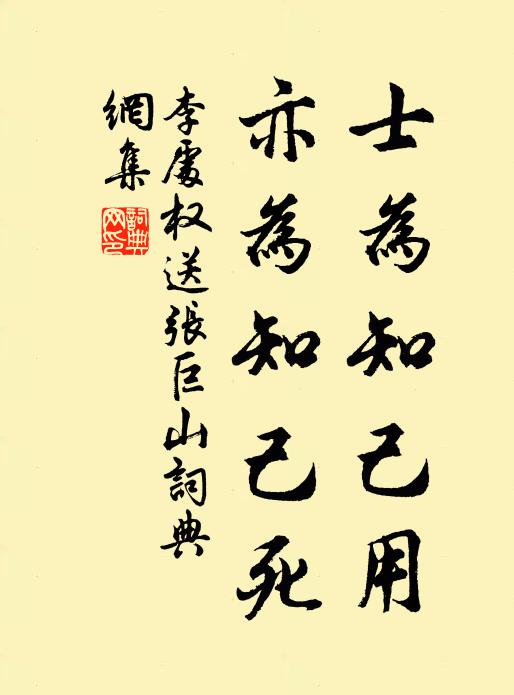 士為知己用
亦為知己死
李處权送張巨山詞典
網集
詞典網印